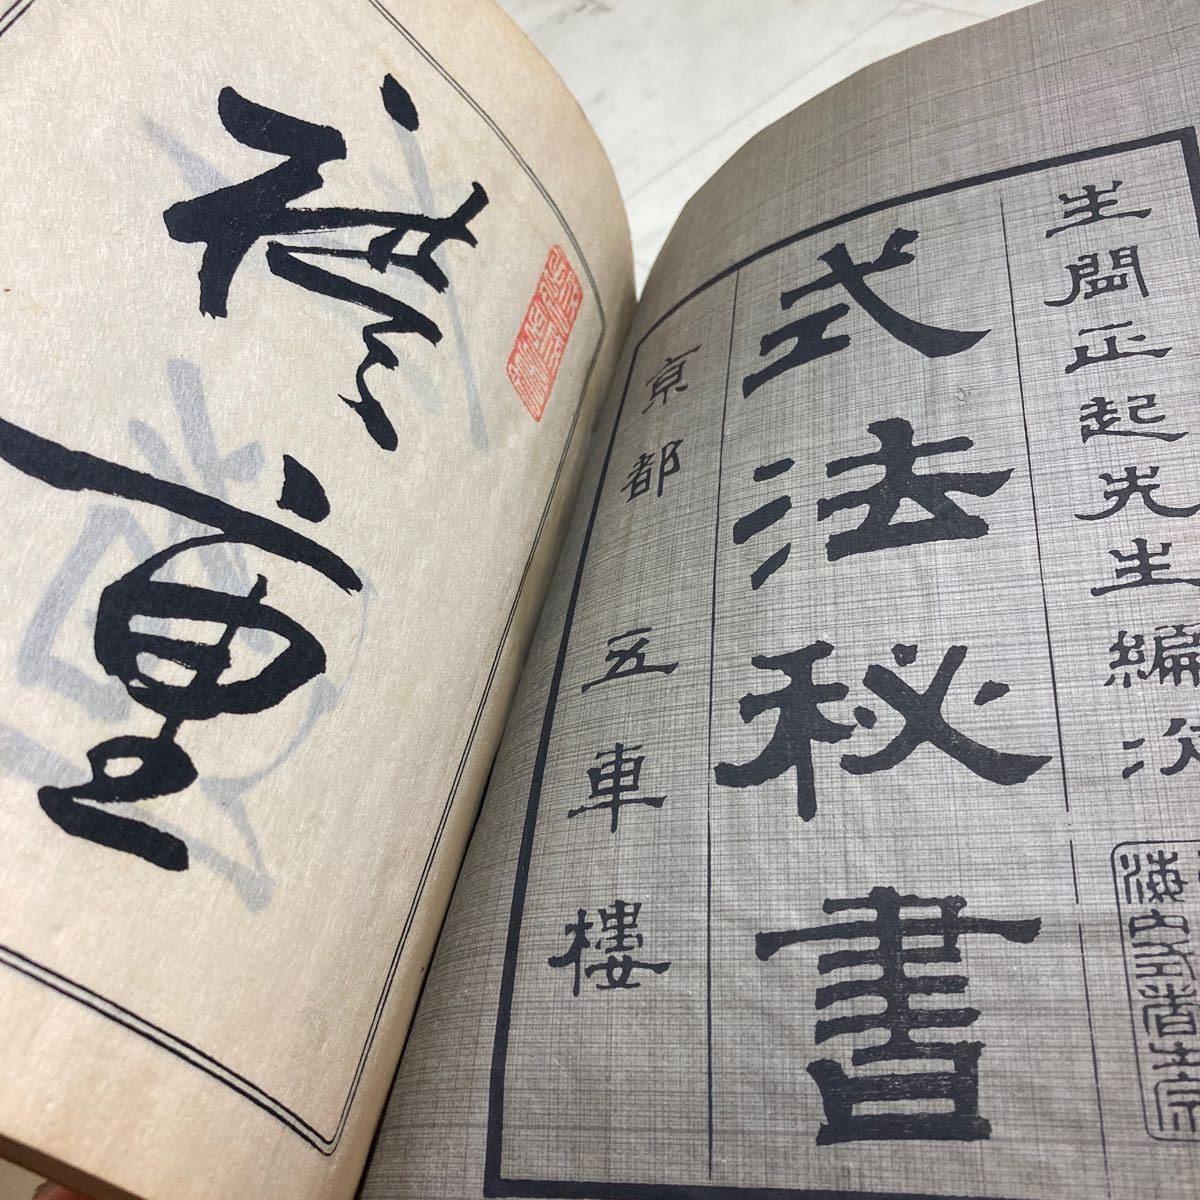 生間正起先生編次
式法秘書
京都 五車樓
重